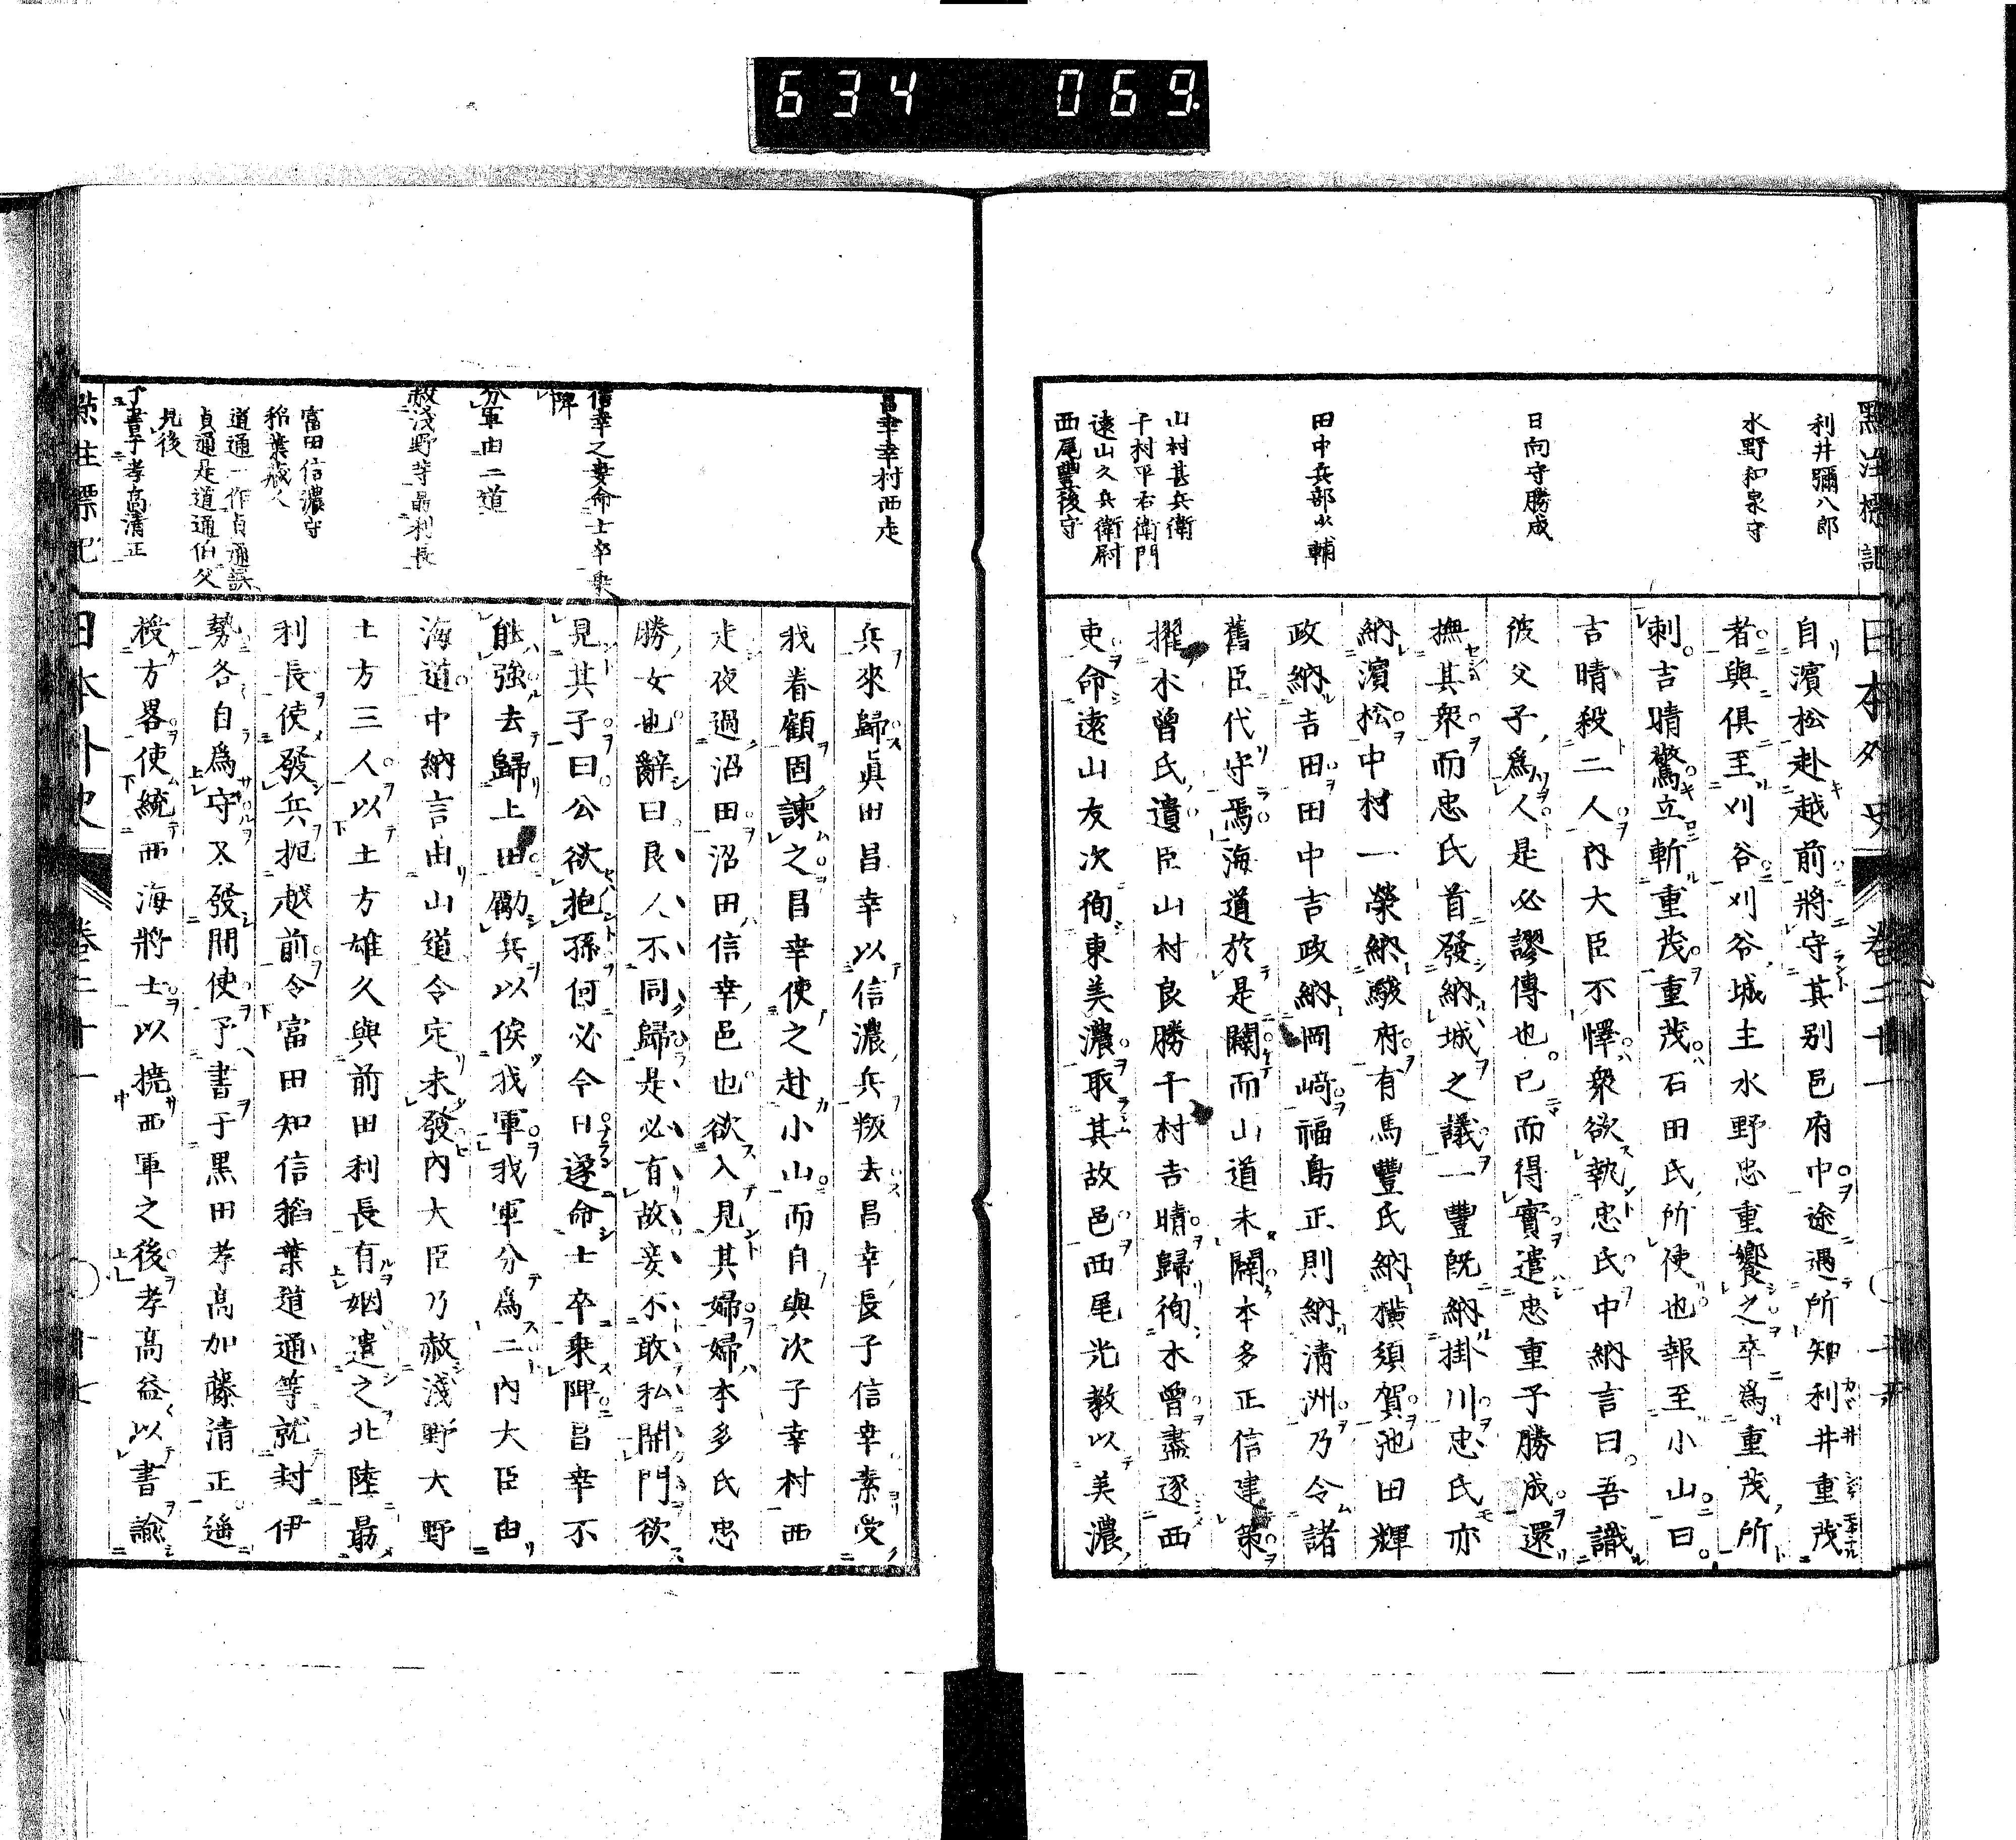 634 069.
點註標記 日本外史 卷二十一
利井彌八郎
水野和泉守
日向守勝成
田中兵部少輔
山村甚兵衞
千村平右衞門
遠山久兵衞尉
西尾豐後守
自濱松赴越前將守其別邑府中途遇所知利井重茂
者與俱至刈谷刈谷城主水野忠重饗之卒爲重茂所
刺吉晴驚立斬重茂重茂石田氏所使也報至小山曰
吉晴殺二人內大臣不懌衆欲執忠氏中納言曰吾識
彼父子爲人是必謬傳也已而得實遣忠重子勝成還
撫其衆而忠氏首發納城之議一豐既納掛川忠氏亦
納濱松中村一榮納駿府有馬豐氏納橫須賀池田輝
政納吉田田中吉政納岡崎福島正則納淸洲乃令諸
舊臣代守焉海道於是闢而山道未闢本多正信建策
擢木曾氏遺臣山村良勝千村吉晴歸徇木曾盡逐西
吏命遠山友次徇東美濃取其故邑西尾光教以美濃
昌幸幸村西走
信幸之妻命士卒乘
陴
分軍由二道
赦淺野等最利長
富田信濃守
稻葉藏人
道通一作貞通誤
貞通是道通伯父
見後
予書于孝高淸正
兵來歸眞田昌幸以信濃兵叛去昌幸長子信幸素受
我眷顧固諫之昌幸使之赴小山而自與次子幸村西
走夜過沼田沼田信幸邑也欲入見其婦婦本多氏忠
勝女也辭曰良人不同歸是必有故妾不敢私開門欲
見其子曰公欲抱孫何必今日遂命士卒乘陴昌幸不
能強去歸上田勵兵以俟我軍我軍分爲二內大臣由
海道中納言由山道令定未發內大臣乃赦淺野大野
土方三人以土方雄久與前田利長有姻遣之北陸最
利長使發兵扼越前令富田知信稻葉道通等就封伊
勢各自爲守又發間使予書于黑田孝高加藤淸正遙
授方畧使統西海將士以撓西軍之後孝高益以書諭
點註標記 日本外史 卷二十一 十七